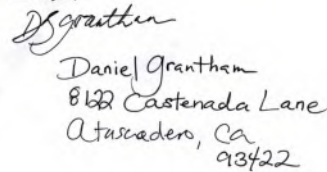 DSgrantham
Daniel Grantham
8122 Castenada Lane
Atascadero, Ca
93422